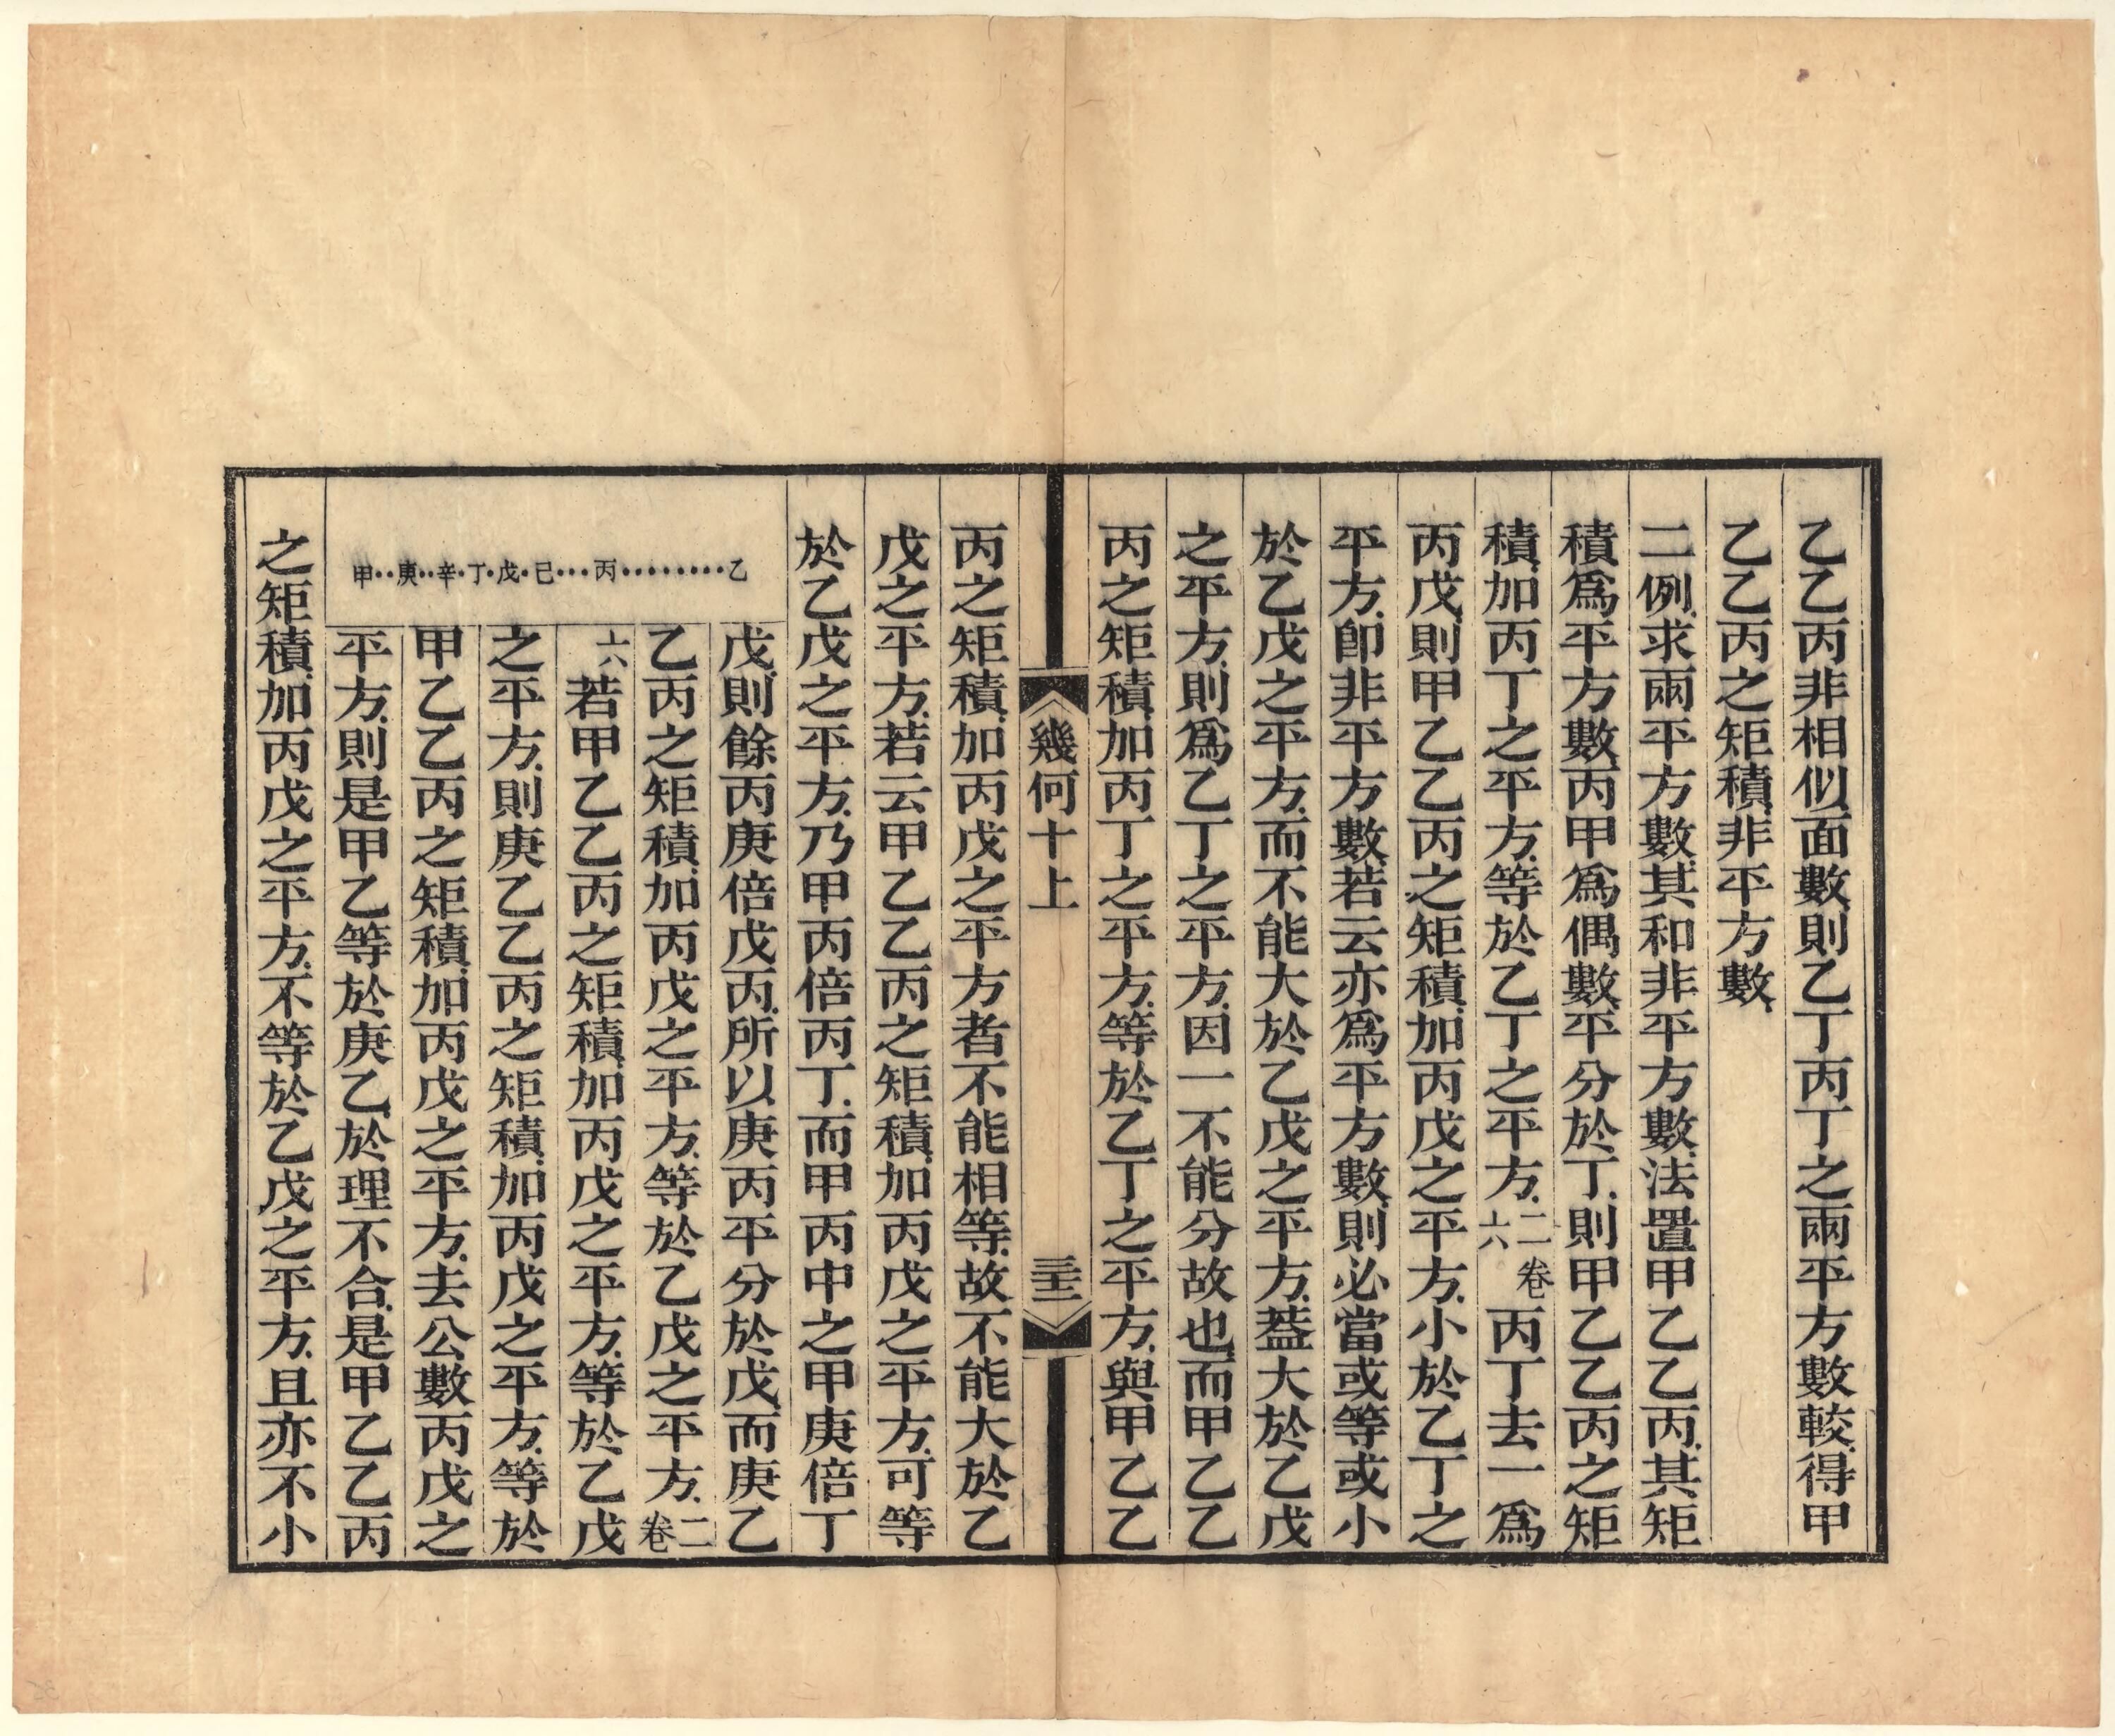 乙乙丙非相似面數則乙丁丙丁之兩平方數較得甲
乙乙丙之矩積非平方數
二例求兩平方數其和非平方數法置甲乙乙丙其矩
積爲平方數丙甲爲偶數平分於丁則甲乙乙丙之矩
積加丙丁之平方等於乙丁之平方二卷六丙丁去一爲
丙戊則甲乙乙丙之矩積加丙戊之平方小於乙丁之
平方卽非平方數若云亦爲平方數則必當或等或小
於乙戊之平方而不能大於乙戊之平方蓋大於乙戊
之平方則爲乙丁之平方因一不能分故也而甲乙乙
丙之矩積加丙丁之平方等於乙丁之平方與甲乙乙
幾何十上
三十二
丙之矩積加丙戊之平方者不能相等故不能大於乙
戊之平方若云甲乙乙丙之矩積加丙戊之平方可等
於乙戊之平方乃甲丙倍丙丁而甲丙中之甲庚倍丁
甲··庚··辛·丁·戊·己···丙········乙
戊則餘丙庚倍戊丙所以庚丙平分於戊而庚乙
乙丙之矩積加丙戊之平方等於乙戊之平方二卷
六若甲乙乙丙之矩積加丙戊之平方等於乙戊
之平方則庚乙乙丙之矩積加丙戊之平方等於
甲乙乙丙之矩積加丙戊之平方去公數丙戊之
平方則是甲乙等於庚乙於理不合是甲乙乙丙
之矩積加丙戊之平方不等於乙戊之平方且亦不小